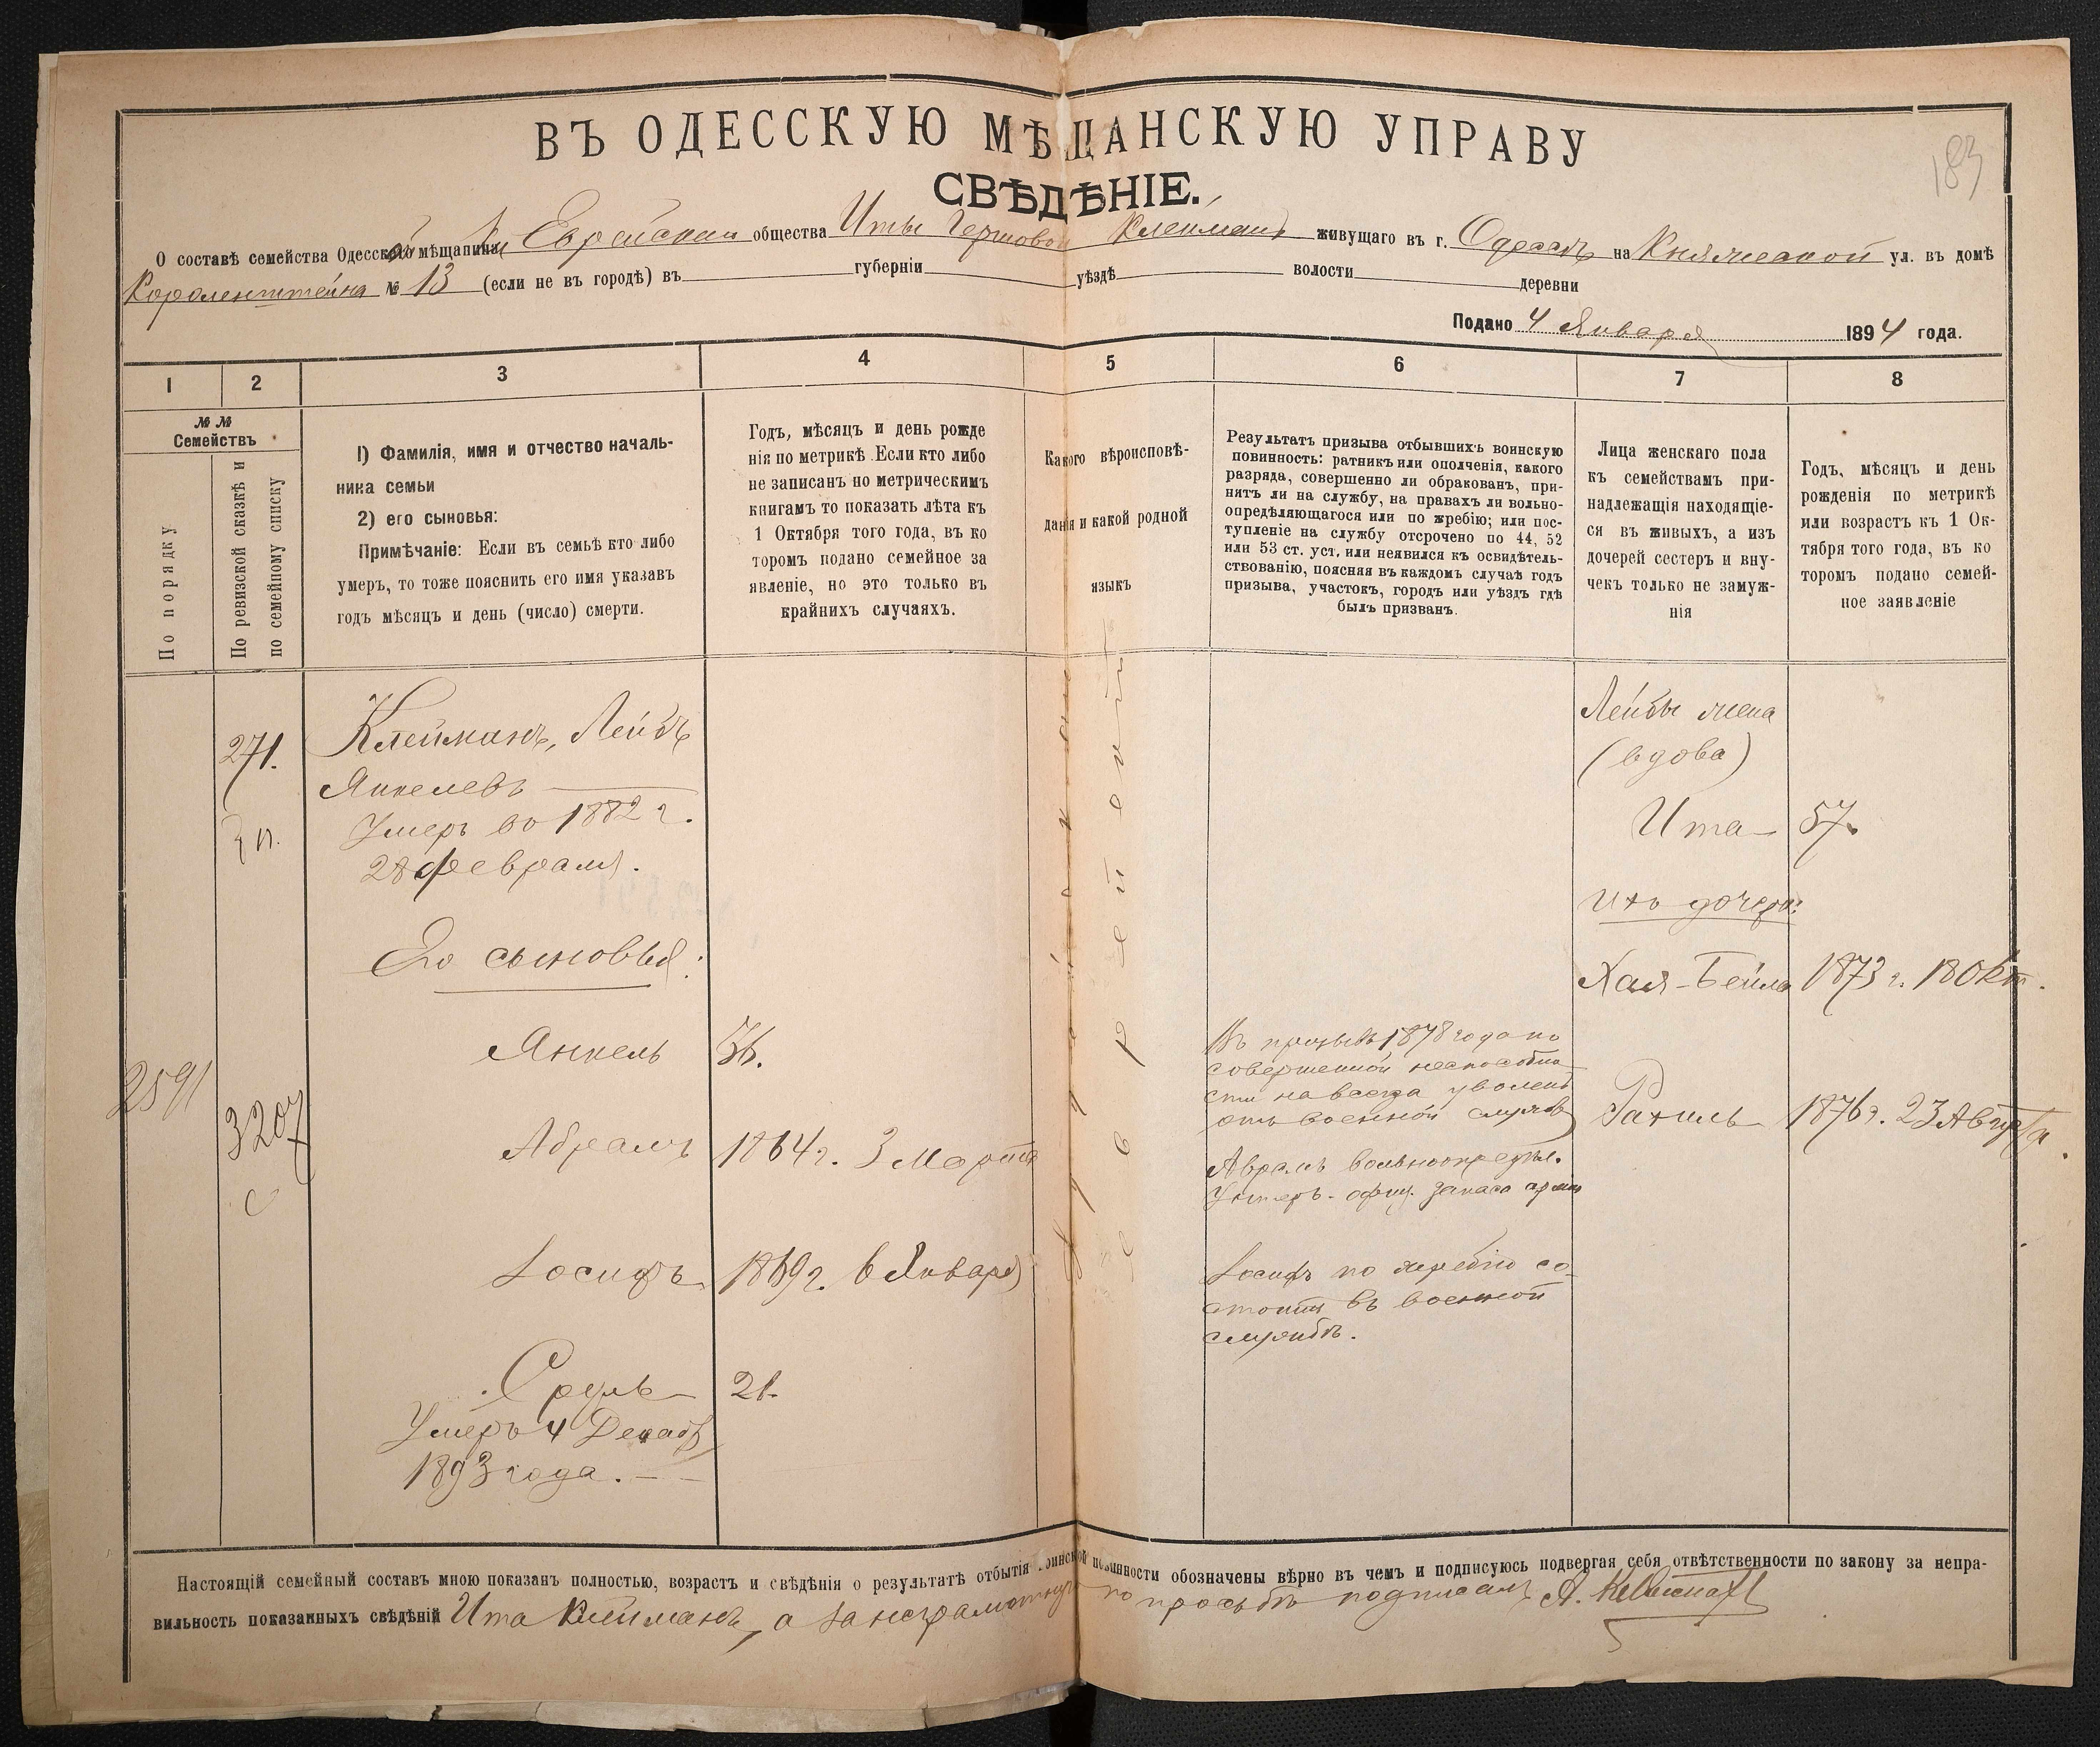 183
ВЪ ОДЕССКУЮ МѢЩАНСКУЮ УПРАВУ
СВѢДѢНІЕ.
О составѣ семейства Одесской мѣщанки Еврейскаго общества Иты Гершовой Клейманъ живущаго въ г. Одессѣ на Княжеской ул. въ домѣ
№ 13 (если не въ городѣ) въ губерніи уѣздѣ волости деревни
Подано 4 Января 1894 года.
1 2 3 4 5 6 7 8
№ №
Семействъ
По порядку
По ревизской сказкѣ и
по семейному списку
1) Фамилія, имя и отчество началь-
ника семьи
2) его сыновья:
Примѣчаніе: Если въ семьѣ кто либо
умеръ, то тоже пояснить его имя указавъ
годъ мѣсяцъ и день (число) смерти.
Годъ, мѣсяцъ и день рожде
нія по метрикѣ. Если кто либо
не записанъ по метрическимъ
книгамъ то показать лѣта къ
1 Октября того года, въ ко
торомъ подано семейное за
явленіе, но это только въ
крайнихъ случаяхъ.
Какого вѣроисповѣ-
данія и какой родной
языкъ
Результатъ призыва отбывшихъ воинскую
повинность: ратникъ или ополченія, какого
разряда, совершенно ли обракованъ, при-
нятъ ли на службу, на правахъ ли вольно-
опредѣляющагося или по жребію; или пос-
тупленіе на службу отсрочено по 44, 52
или 53 ст. уст. или неявился къ освидѣтель-
ствованію, поясняя въ каждомъ случаѣ годъ
призыва, участокъ, городъ или уѣздъ гдѣ
былъ призванъ.
Лица женскаго пола
къ семействамъ при-
надлежащія находящіе-
ся въ живыхъ, а изъ
дочерей сестеръ и вну-
чекъ только не замуж-
нія
Годъ, мѣсяцъ и день
рожденія по метрикѣ
или возрастъ къ 1 Ок-
тября того года, въ ко
торомъ подано семей-
ное заявленіе
271.
Клейманъ, Лейбъ
Янкелевъ
Умеръ во 1882 г.
28 февраля.
Его сыновья:
2591
3207
Янкель 36.
Абрамъ 1864 г. 3 Марта
Іосифъ 1869 г. 6 Января
Сруль 21.
Умеръ 4 Декаб
1893 года.
Іудейскаго
еврейскій
Въ призывъ 1878 года по
совершенной неспособно
сти навсегда уволенъ
отъ военной службы
Абрамъ вольноопредѣл.
Унтеръ-офиц. запаса арміи
Іосифъ по жребію со-
стоитъ въ военной
службѣ.
Лейбы жена
(вдова)
Ита 57.
Ихъ дочери:
Хая-Бейла 1873 г. 18 Окт.
Рахиль 1876 г. 23 Августа.
Настоящій семейный составъ мною показанъ полностью, возрастъ и свѣдѣнія о результатѣ отбытія воинской повинности обозначены вѣрно въ чемъ и подписуюсь подвергая себя отвѣтственности по закону за непра-
вильность показанныхъ свѣдѣній Ита Клейманъ, а за неграмотную по просьбѣ подписалъ А.